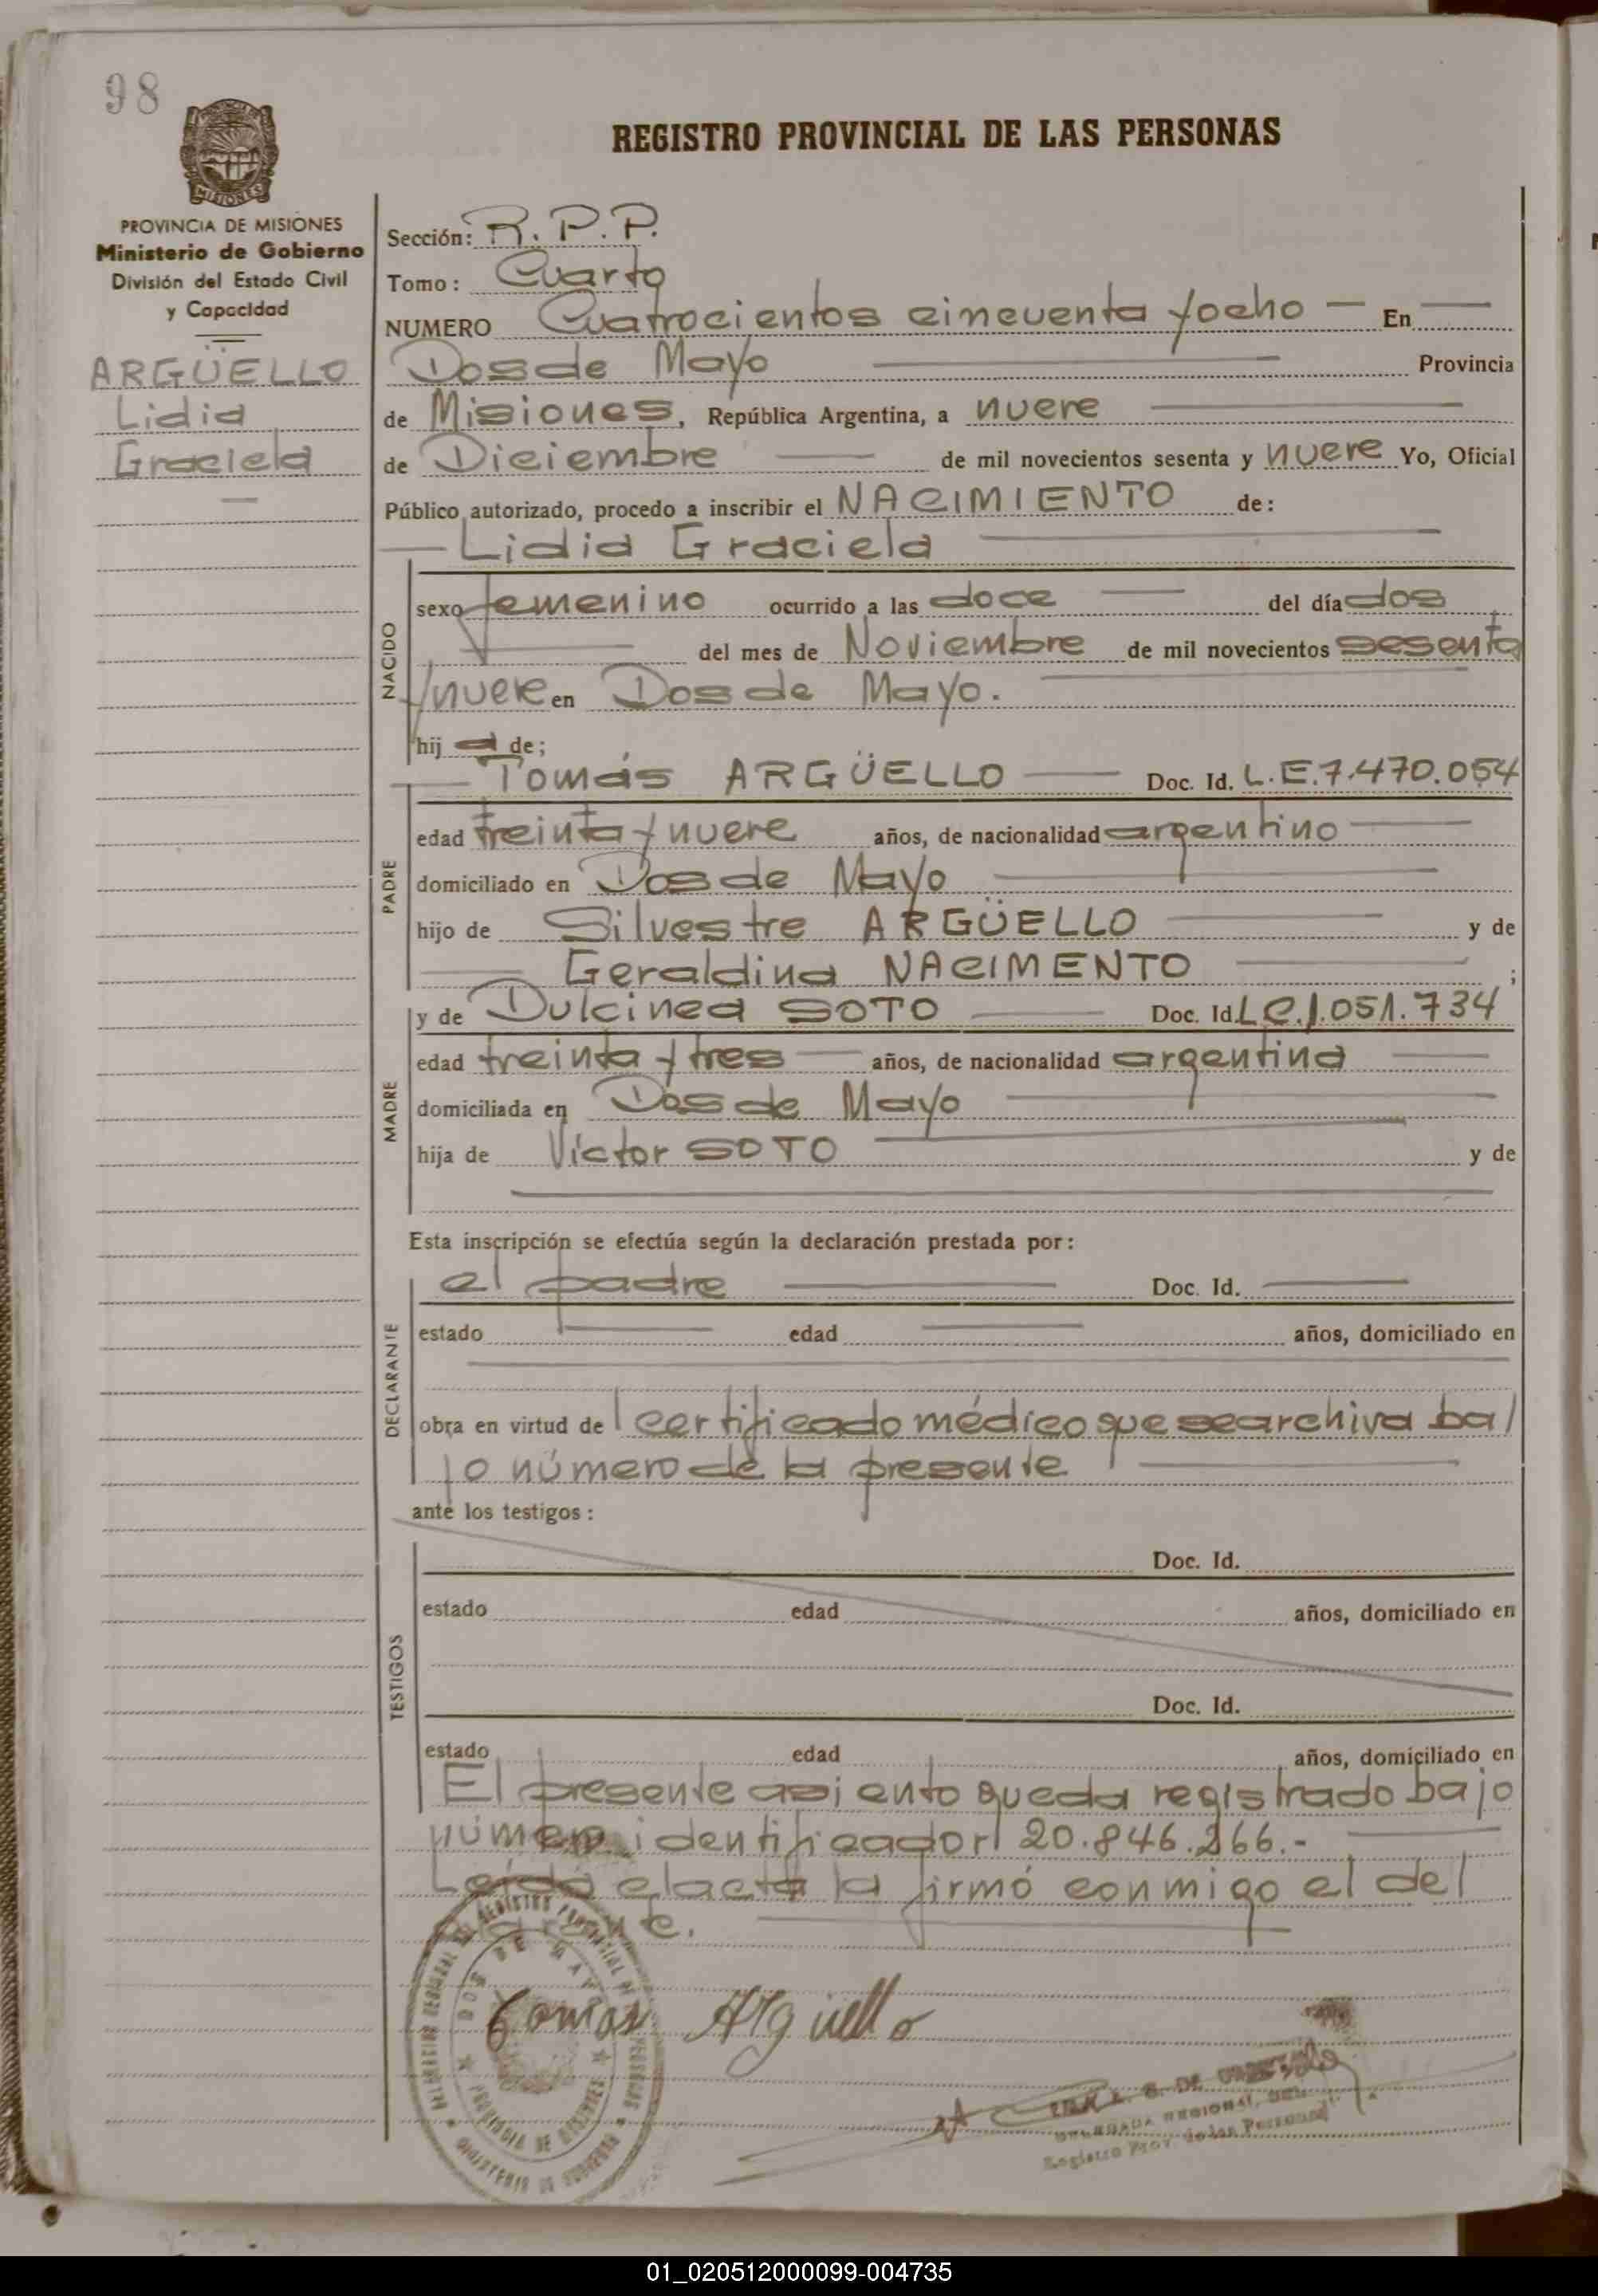 98
REGISTRO PROVINCIAL DE LAS PERSONAS
MISIONES
PROVINCIA DE MISIONES
Ministerio de Gobierno
División del Estado Civil
y Capacidad
ARGÜELLO
Lidia
Graciela
Sección: R. P. P.
Tomo: Cuarto
NUMERO Cuatrocientos cincuenta y ocho — En —
Dos de Mayo — Provincia
de Misiones, República Argentina, a nueve —
de Diciembre — de mil novecientos sesenta y nueve Yo, Oficial
Público autorizado, procedo a inscribir el NACIMIENTO de:
— Lidia Graciela —
NACIDO
sexo femenino ocurrido a las doce — del día dos
— del mes de Noviembre de mil novecientos sesenta
y nueve en Dos de Mayo. —
hij a de;
— Tomás ARGÜELLO — Doc. Id. L.E.7.470.054
PADRE
edad treinta y nueve años, de nacionalidad argentino —
domiciliado en Dos de Mayo —
hijo de Silvestre ARGÜELLO — y de
— Geraldina NACIMENTO — ;
y de Dulcinea SOTO — Doc. Id. L.C.1.051.734
MADRE
edad treinta y tres — años, de nacionalidad argentina —
domiciliada en Dos de Mayo —
hija de Víctor SOTO — y de
—
Esta inscripción se efectúa según la declaración prestada por:
el padre — Doc. Id. —
DECLARANTE
estado — edad — años, domiciliado en
—
obra en virtud de l certificado médico que se archiva ba/
jo número de la presente —
ante los testigos:
Doc. Id.
TESTIGOS
estado edad años, domiciliado en
Doc. Id.
estado edad años, domiciliado en
El presente asiento queda registrado bajo
número identificador 20.846.266.- —
Leída el acta la firmó conmigo el de/
Tomas Argüello
DOS DE MAYO
PROVINCIA DE MISIONES
MINISTERIO DE GOBIERNO
DELEGADA REGIONAL DEL
Registro Prov. de las Personas
01_020512000099-004735